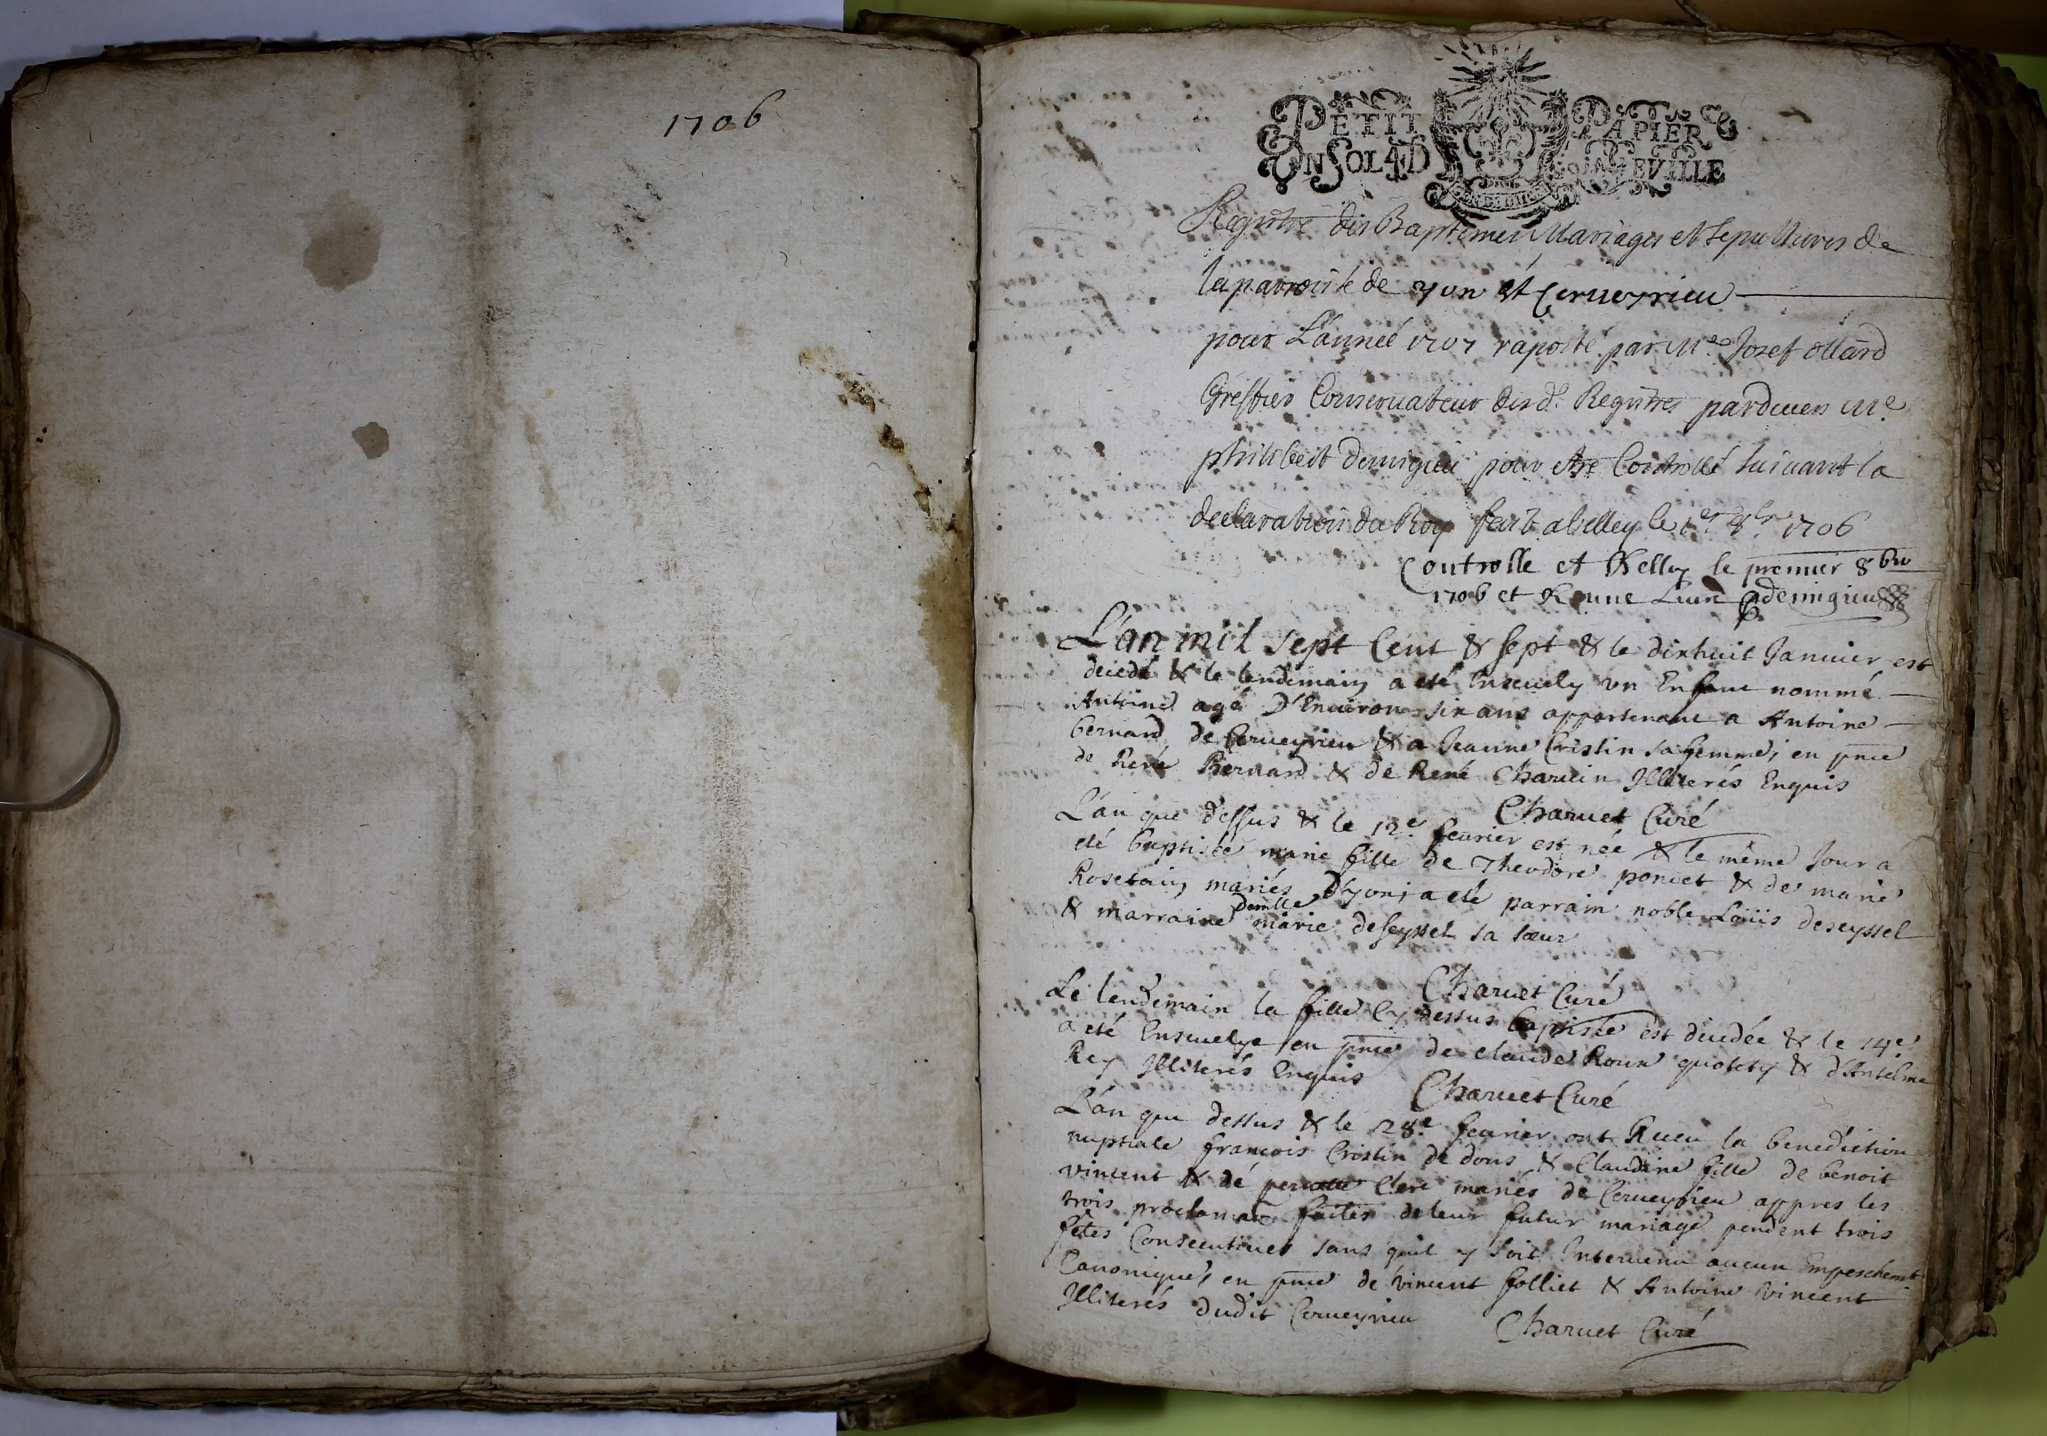 1706
PETIT PAPIER
UN SOL 4 D LA FEVILLE
Registre des Baptemes Mariages et sepultures de
la parroisse de yon et Cerueyrieu
pour L'année 1707 raporté par Me Josef ollard
Greffier Conseruateur des d. Registres pardeuen Me
philibert demigieu pour etre Controllé suiuant la
declaration du Roy fait a belley le 1er 8bre 1706
Controlle et Belley le premier 8bre
1706 et R une Liure demigieu
L'an mil sept Cent & sept & le dixhuit Januier est
decedé & le lendemain a eté Enseuely vn Enfant nommé
Antoine agé D'Enuiron six ans appartenant a Antoine
bernard de Cerueyrieu & a Jeanne Cristin sa femme, en pnce
de René Bernard & de René Charuin Jlliterés Enquis
Charuet Curé
L'an que dessus & le 12e feurier est née & le même Jour a
eté baptisée marie fille de Theodore poncet & de marie
Rosetain mariés D'yon; a eté parrain noble Loüis deseyssel
& marraine Demlle marie deseyssel sa sœur
Charuet Curé
Le lendemain la fille Cy dessus baptisée est decedée & le 14e
a eté Enseuelye en pnce de claude Roux quotety & d'Antelme
Rey Jlliterés Enquis Charuet Curé
L'an que dessus & le 28e feurier ont Receu la benediction
nuptiale françois Cristin de dons & Claudine fille de benoit
vincent & de pernette Clerc mariés de Cerueyrieu appres les
trois proclamaons faites de leur futur mariage pendent trois
fêtes Consecutiues sans quil y soit Interuenu aucun Empeschemt
Canonique, en pnce de vincent folliet & Antoine vincent
Jlliterés dudit Cerueyrieu Charuet Curé